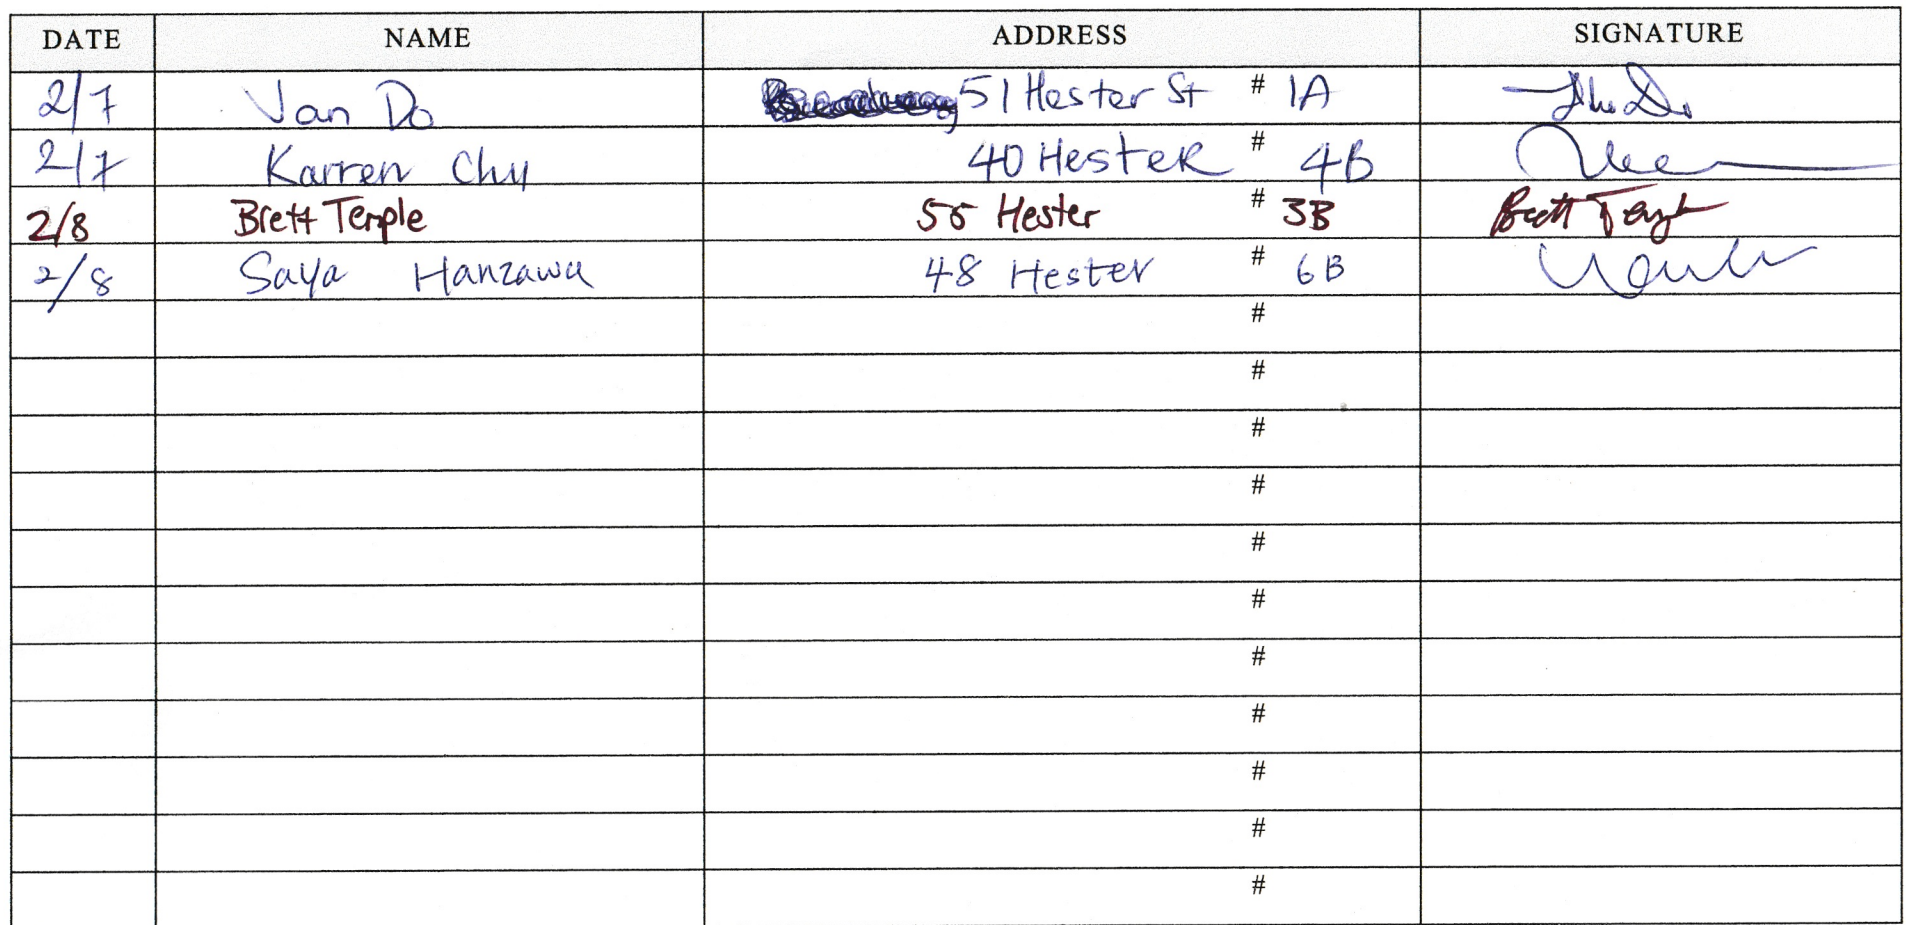 DATE NAME ADDRESS SIGNATURE
2/7 Van Do 51 Hester St # 1A
2/7 Karren Chu 40 Hester # 4B
2/8 Brett Temple 55 Hester # 3B Brett Temple
2/8 Saya Hanzawa 48 Hester # 6B
#
#
#
#
#
#
#
#
#
#
#